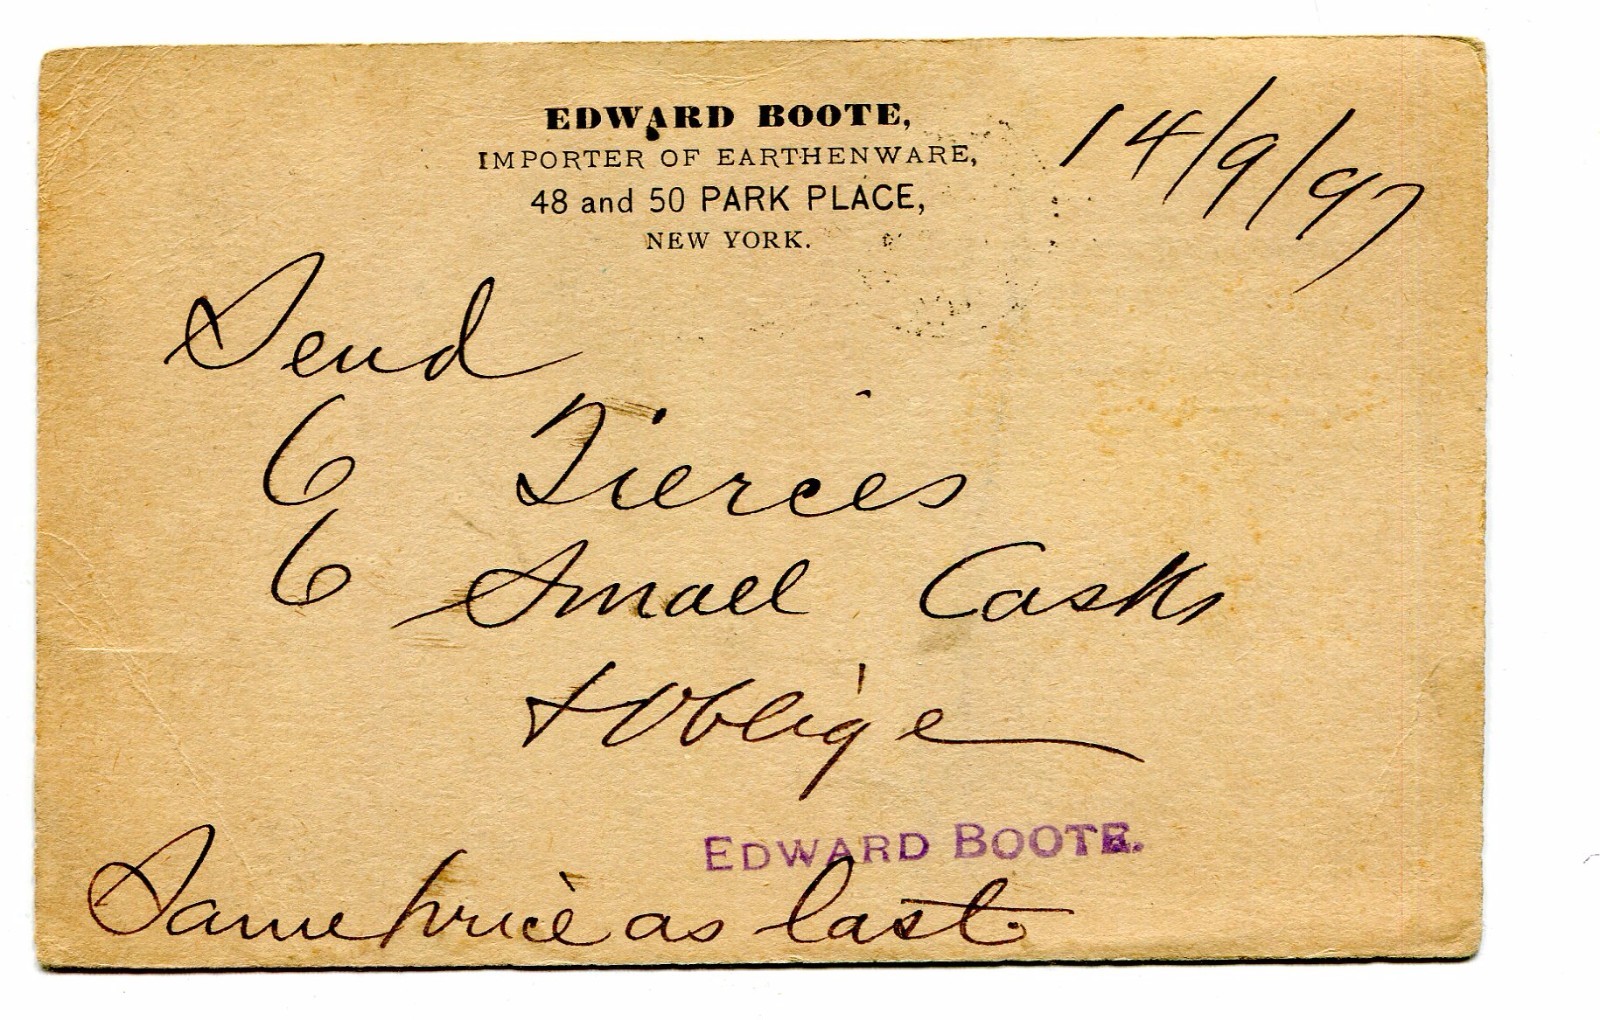 EDWARD BOOTE,
IMPORTER OF EARTHENWARE,
48 and 50 PARK PLACE,
NEW YORK.
14/9/97
Send
6 Tierces
6 Small Casks
& Oblige
EDWARD BOOTE.
Same price as last.